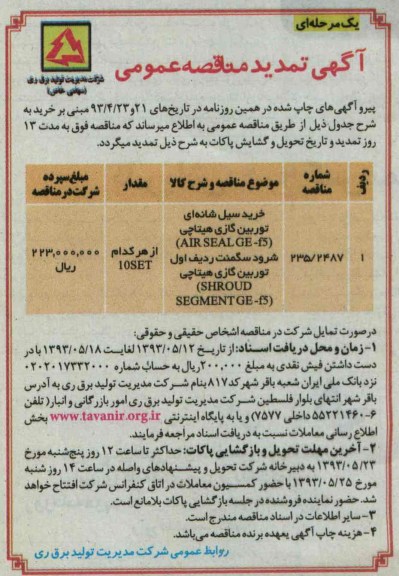 یک مرحله‌ای
آگهی تمدید مناقصه عمومی
شرکت مدیریت تولید برق ری
(سهامی خاص)
پیرو آگهی‌های چاپ شده در همین روزنامه در تاریخ‌های ۲۱و۹۳/۴/۲۳ مبنی بر خرید به
شرح جدول ذیل از طریق مناقصه عمومی به اطلاع میرساند که مناقصه فوق به مدت ۱۳
روز تمدید و تاریخ تحویل و گشایش پاکات به شرح ذیل تمدید میگردد.
ردیف
شماره مناقصه
موضوع مناقصه و شرح کالا
مقدار
مبلغ سپرده شرکت در مناقصه
۱
۲۳۵/۲۴۸۷
خرید سیل شانه‌ای
توربین گازی هیتاچی
(AIR SEAL GE -f5)
شرود سگمنت ردیف اول
توربین گازی هیتاچی
(SHROUD
SEGMENT GE -f5)
از هر کدام
10SET
۲۲۳,۰۰۰,۰۰۰
ریال
در صورت تمایل شرکت در مناقصه اشخاص حقیقی و حقوقی:
۱- زمان و محل دریافت اسناد: از تاریخ ۱۳۹۳/۰۵/۱۲ لغایت ۱۳۹۳/۰۵/۱۸ با در
دست داشتن فیش نقدی به مبلغ ۲۰۰,۰۰۰ ریال به حساب شماره ۰۲۰۲۰۱۷۳۳۲۰۰۰
نزد بانک ملی ایران شعبه باقر شهر کد ۸۱۷ بنام شرکت مدیریت تولید برق ری به آدرس
باقر شهر انتهای بلوار فلسطین شرکت مدیریت تولید برق ری امور بازرگانی و انبار( تلفن
۶-۵۵۲۲۱۴۶۰ داخلی ۷۵۷۷) و یا به پایگاه اینترنتی www.tavanir.org.ir بخش
اطلاع رسانی معاملات نسبت به دریافت اسناد مراجعه فرمایند.
۲- آخرین مهلت تحویل و بازگشایی پاکات: حداکثر تا ساعت ۱۲ روز پنج‌شنبه مورخ
۱۳۹۳/۰۵/۲۳ به دبیرخانه شرکت تحویل و پیشنهادهای واصله در ساعت ۱۴ روز شنبه
مورخ ۱۳۹۳/۰۵/۲۵ با حضور کمسیون معاملات در اتاق کنفرانس شرکت افتتاح خواهد
شد. حضور نماینده فروشنده در جلسه بازگشایی پاکات بلامانع است.
۳- سایر اطلاعات در اسناد مناقصه مندرج است.
۴- هزینه چاپ آگهی بعهده برنده مناقصه می‌باشد.
روابط عمومی شرکت مدیریت تولید برق ری